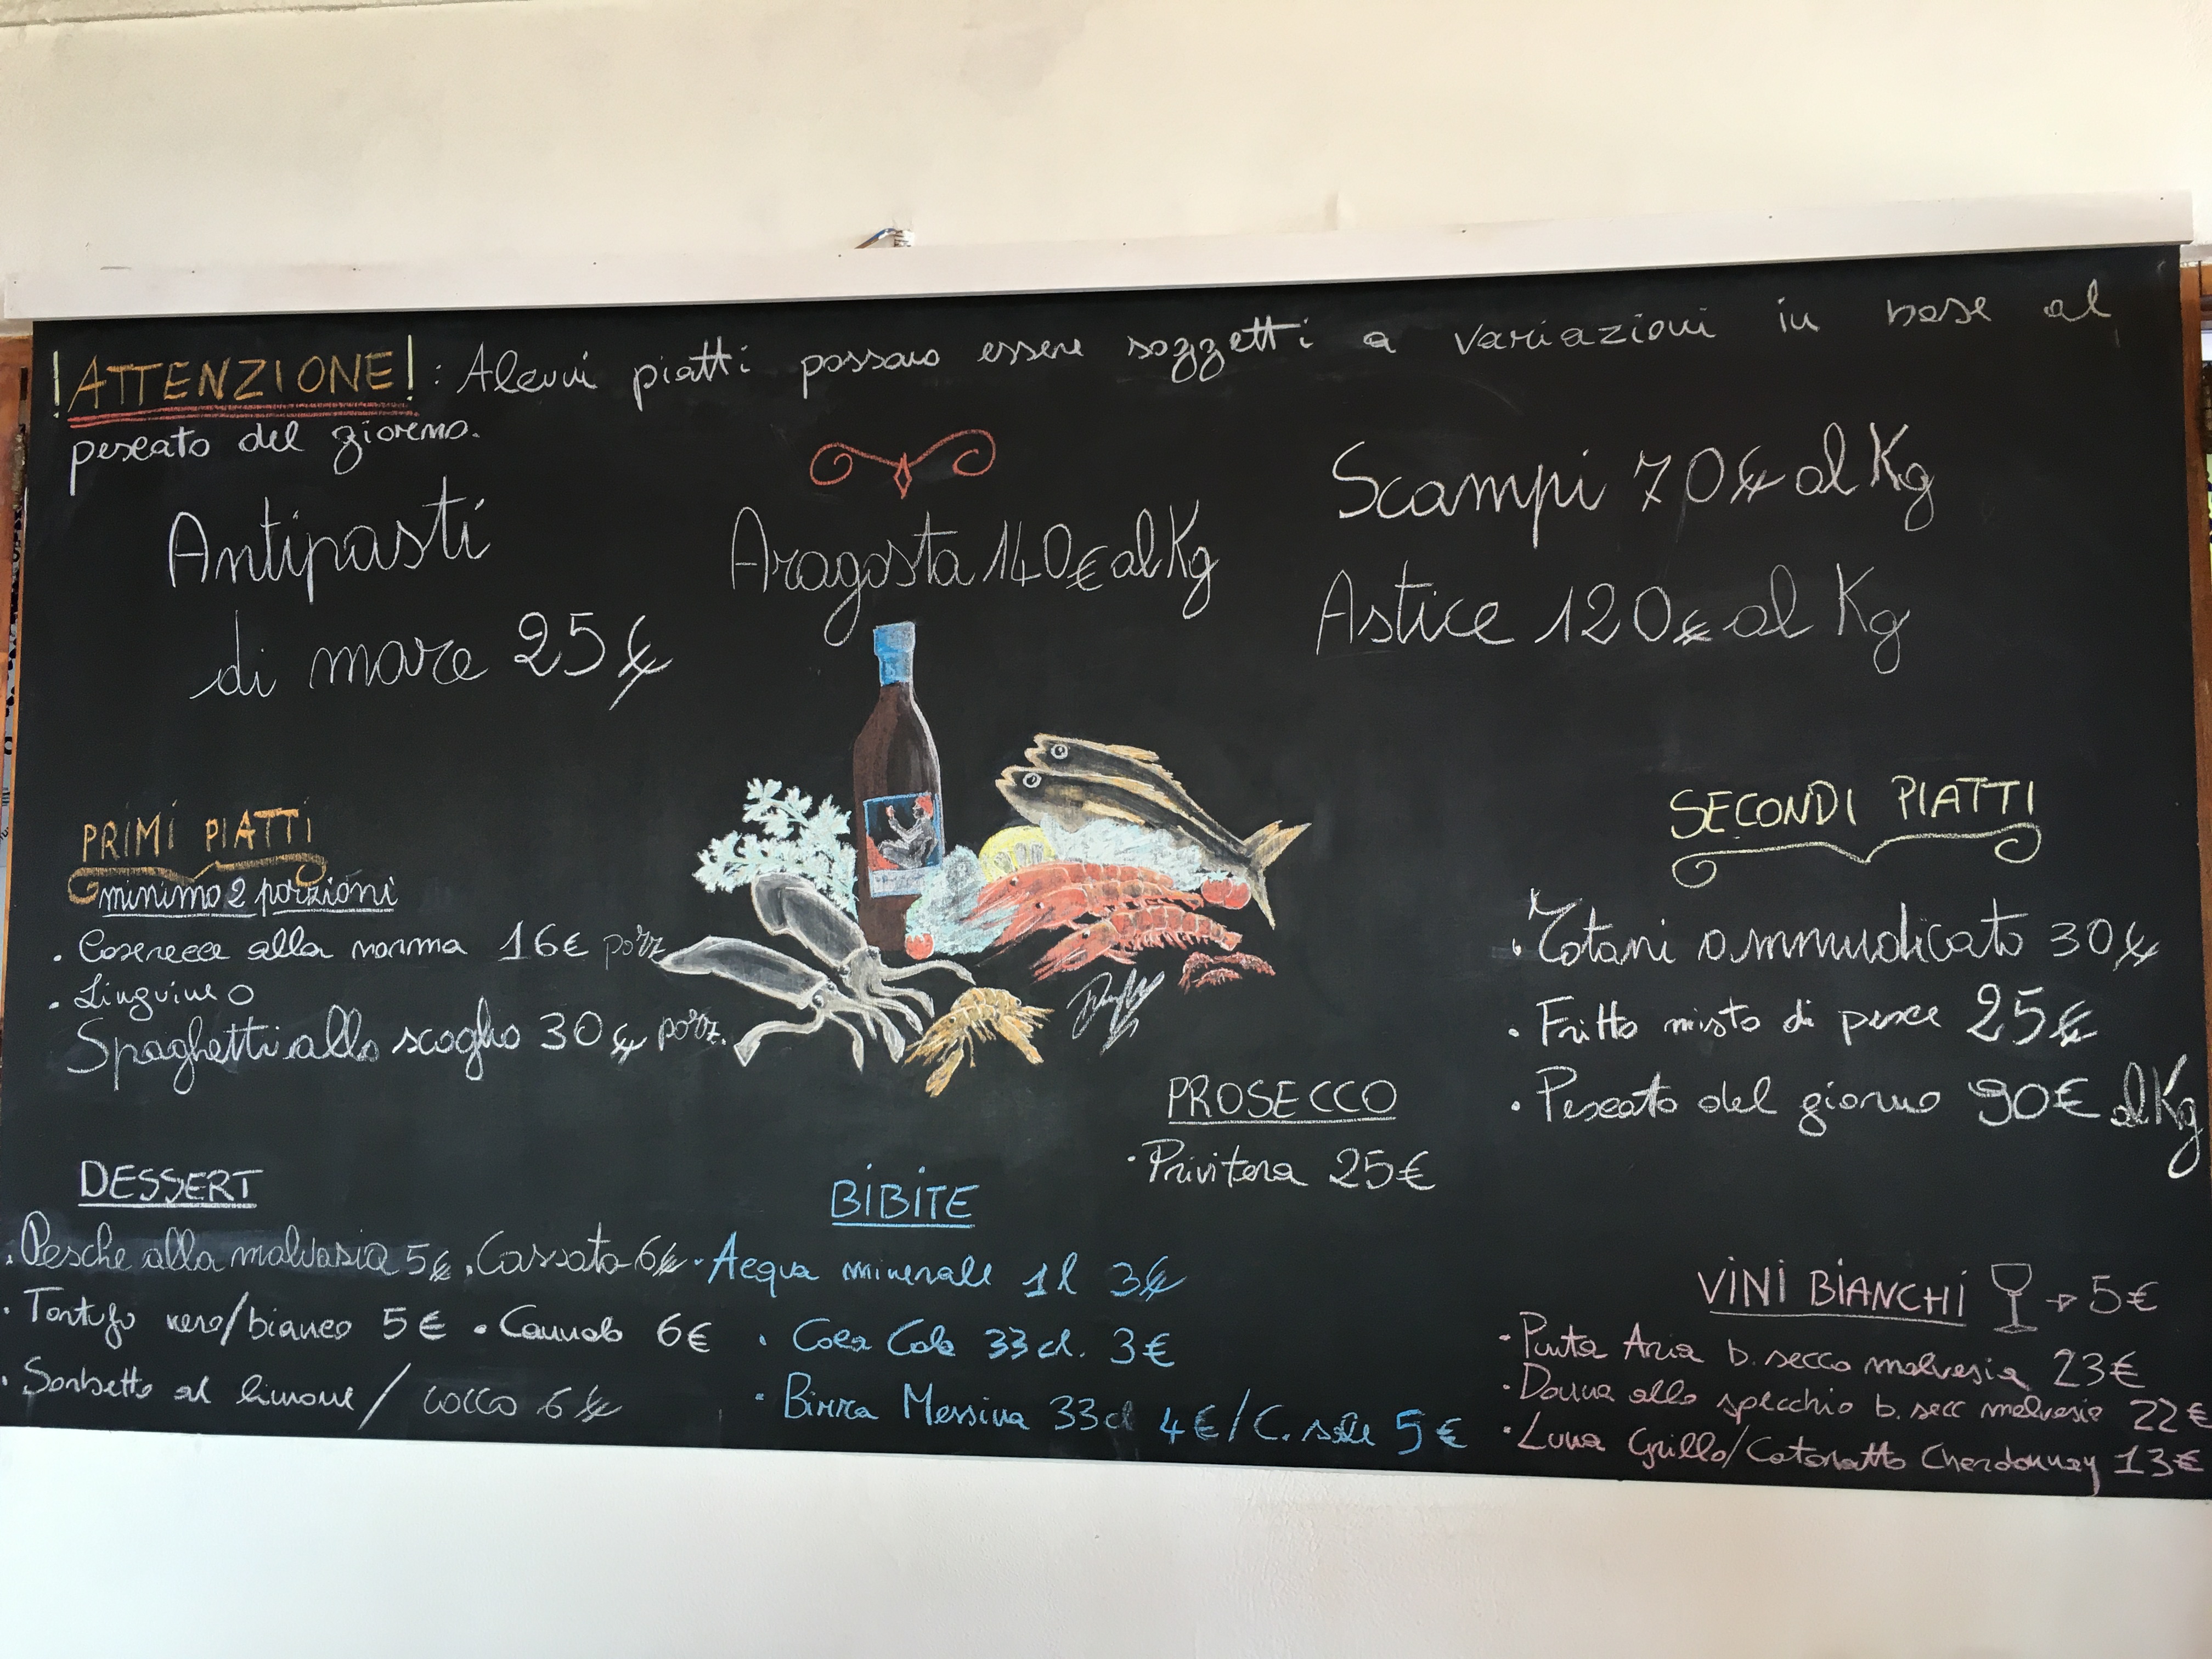 !ATTENZIONE!: Alcuni piatti possono essere soggetti a variazioni in base al
pescato del giorno.
Antipasti
di mare 25€
Aragosta 140€ al Kg
Scampi 70€ al Kg
Astice 120€ al Kg
PRIMI PIATTI
minimo 2 porzioni
· Caserecce alla norma 16€ porz
· Linguine o
Spaghetti allo scoglio 30€ porz.
SECONDI PIATTI
· Totani ammudicato 30€
· Fritto misto di pesce 25€
· Pescato del giorno 90€ al Kg
PROSECCO
· Privitera 25€
DESSERT
· Pesche alla malvasia 5€ · Cassata 6€
· Tartufo nero/bianco 5€ · Cannolo 6€
· Sorbetto al limone / cocco 6€
BIBITE
· Acqua minerale 1l 3€
· Coca Cola 33cl. 3€
· Birra Messina 33cl 4€ / C. sale 5€
VINI BIANCHI → 5€
· Punta Aria b. secco malvasia 23€
· Donna allo specchio b. secc malvasia 22€
· Luna Grillo/Cataratto Chardonnay 13€